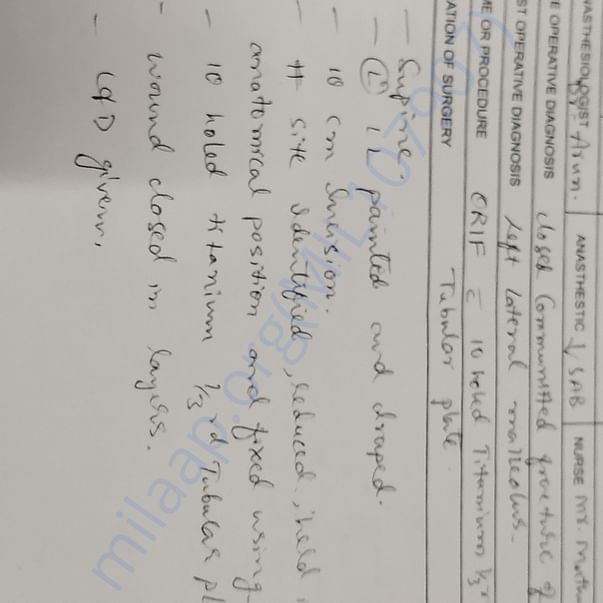 NASTHESIOLOGIST Dr. Arun. ANASTHESTIC ↓ SAB NURSE Mr.
E OPERATIVE DIAGNOSIS closed Communited fracture of
ST OPERATIVE DIAGNOSIS left lateral malleolus.
ME OR PROCEDURE ORIF c̄ 10 holed Titanium 1/3 r
Tubular plate.
ATION OF SURGERY
- Supine.
- (L) LL painted and draped.
- 10 cm Incision.
- # site identified, reduced, held
anatomical position and fixed using
- 10 holed titanium 1/3 rd Tubular pl
- wound closed in layers.
- given.
milaap.org/MIL